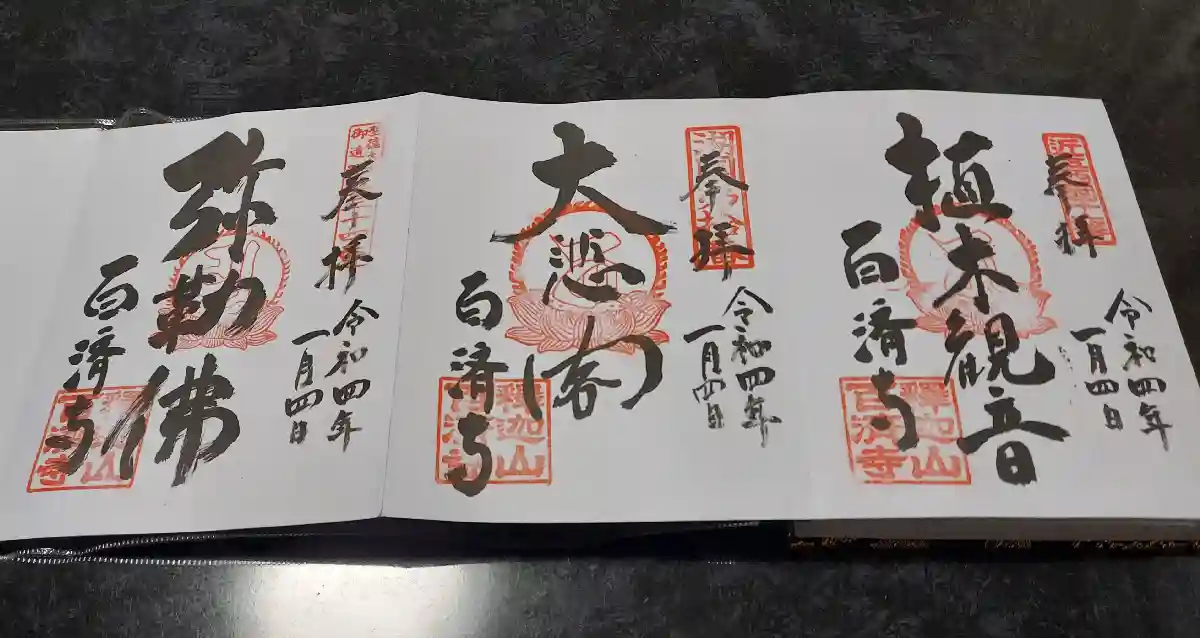 奉拝
令和四年
一月四日
植木観音
百済寺
釋迦山
百済寺
奉拝
令和四年
一月四日
大悲閣
百済寺
釋迦山
百済寺
奉拝
令和四年
一月四日
弥勒佛
百済寺
釋迦山
百済寺